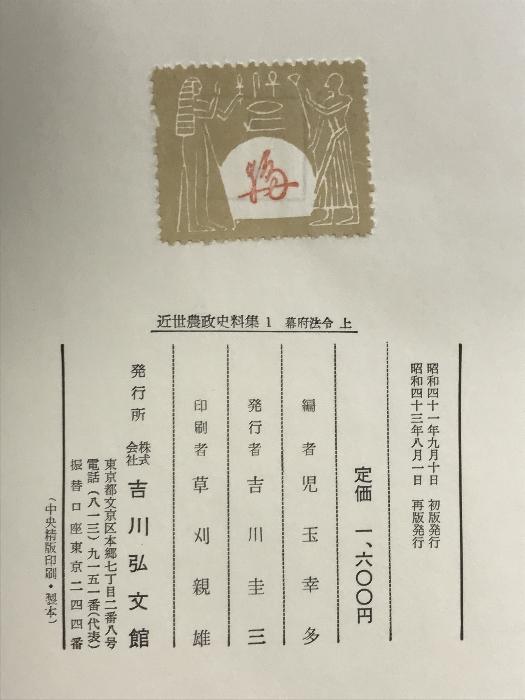 近世農政史料集 1 幕府法令 上
昭和四十一年九月十日 初版発行
昭和四十三年八月一日 再版発行
定価 一、六〇〇円
編者 児玉幸多
発行者 吉川圭三
印刷者 草刈親雄
発行所 株式会社 吉川弘文館
東京都文京区本郷七丁目二番八号
電話(八一三)九一五一番(代表)
振替口座東京二四四番
(中央精版印刷・製本)